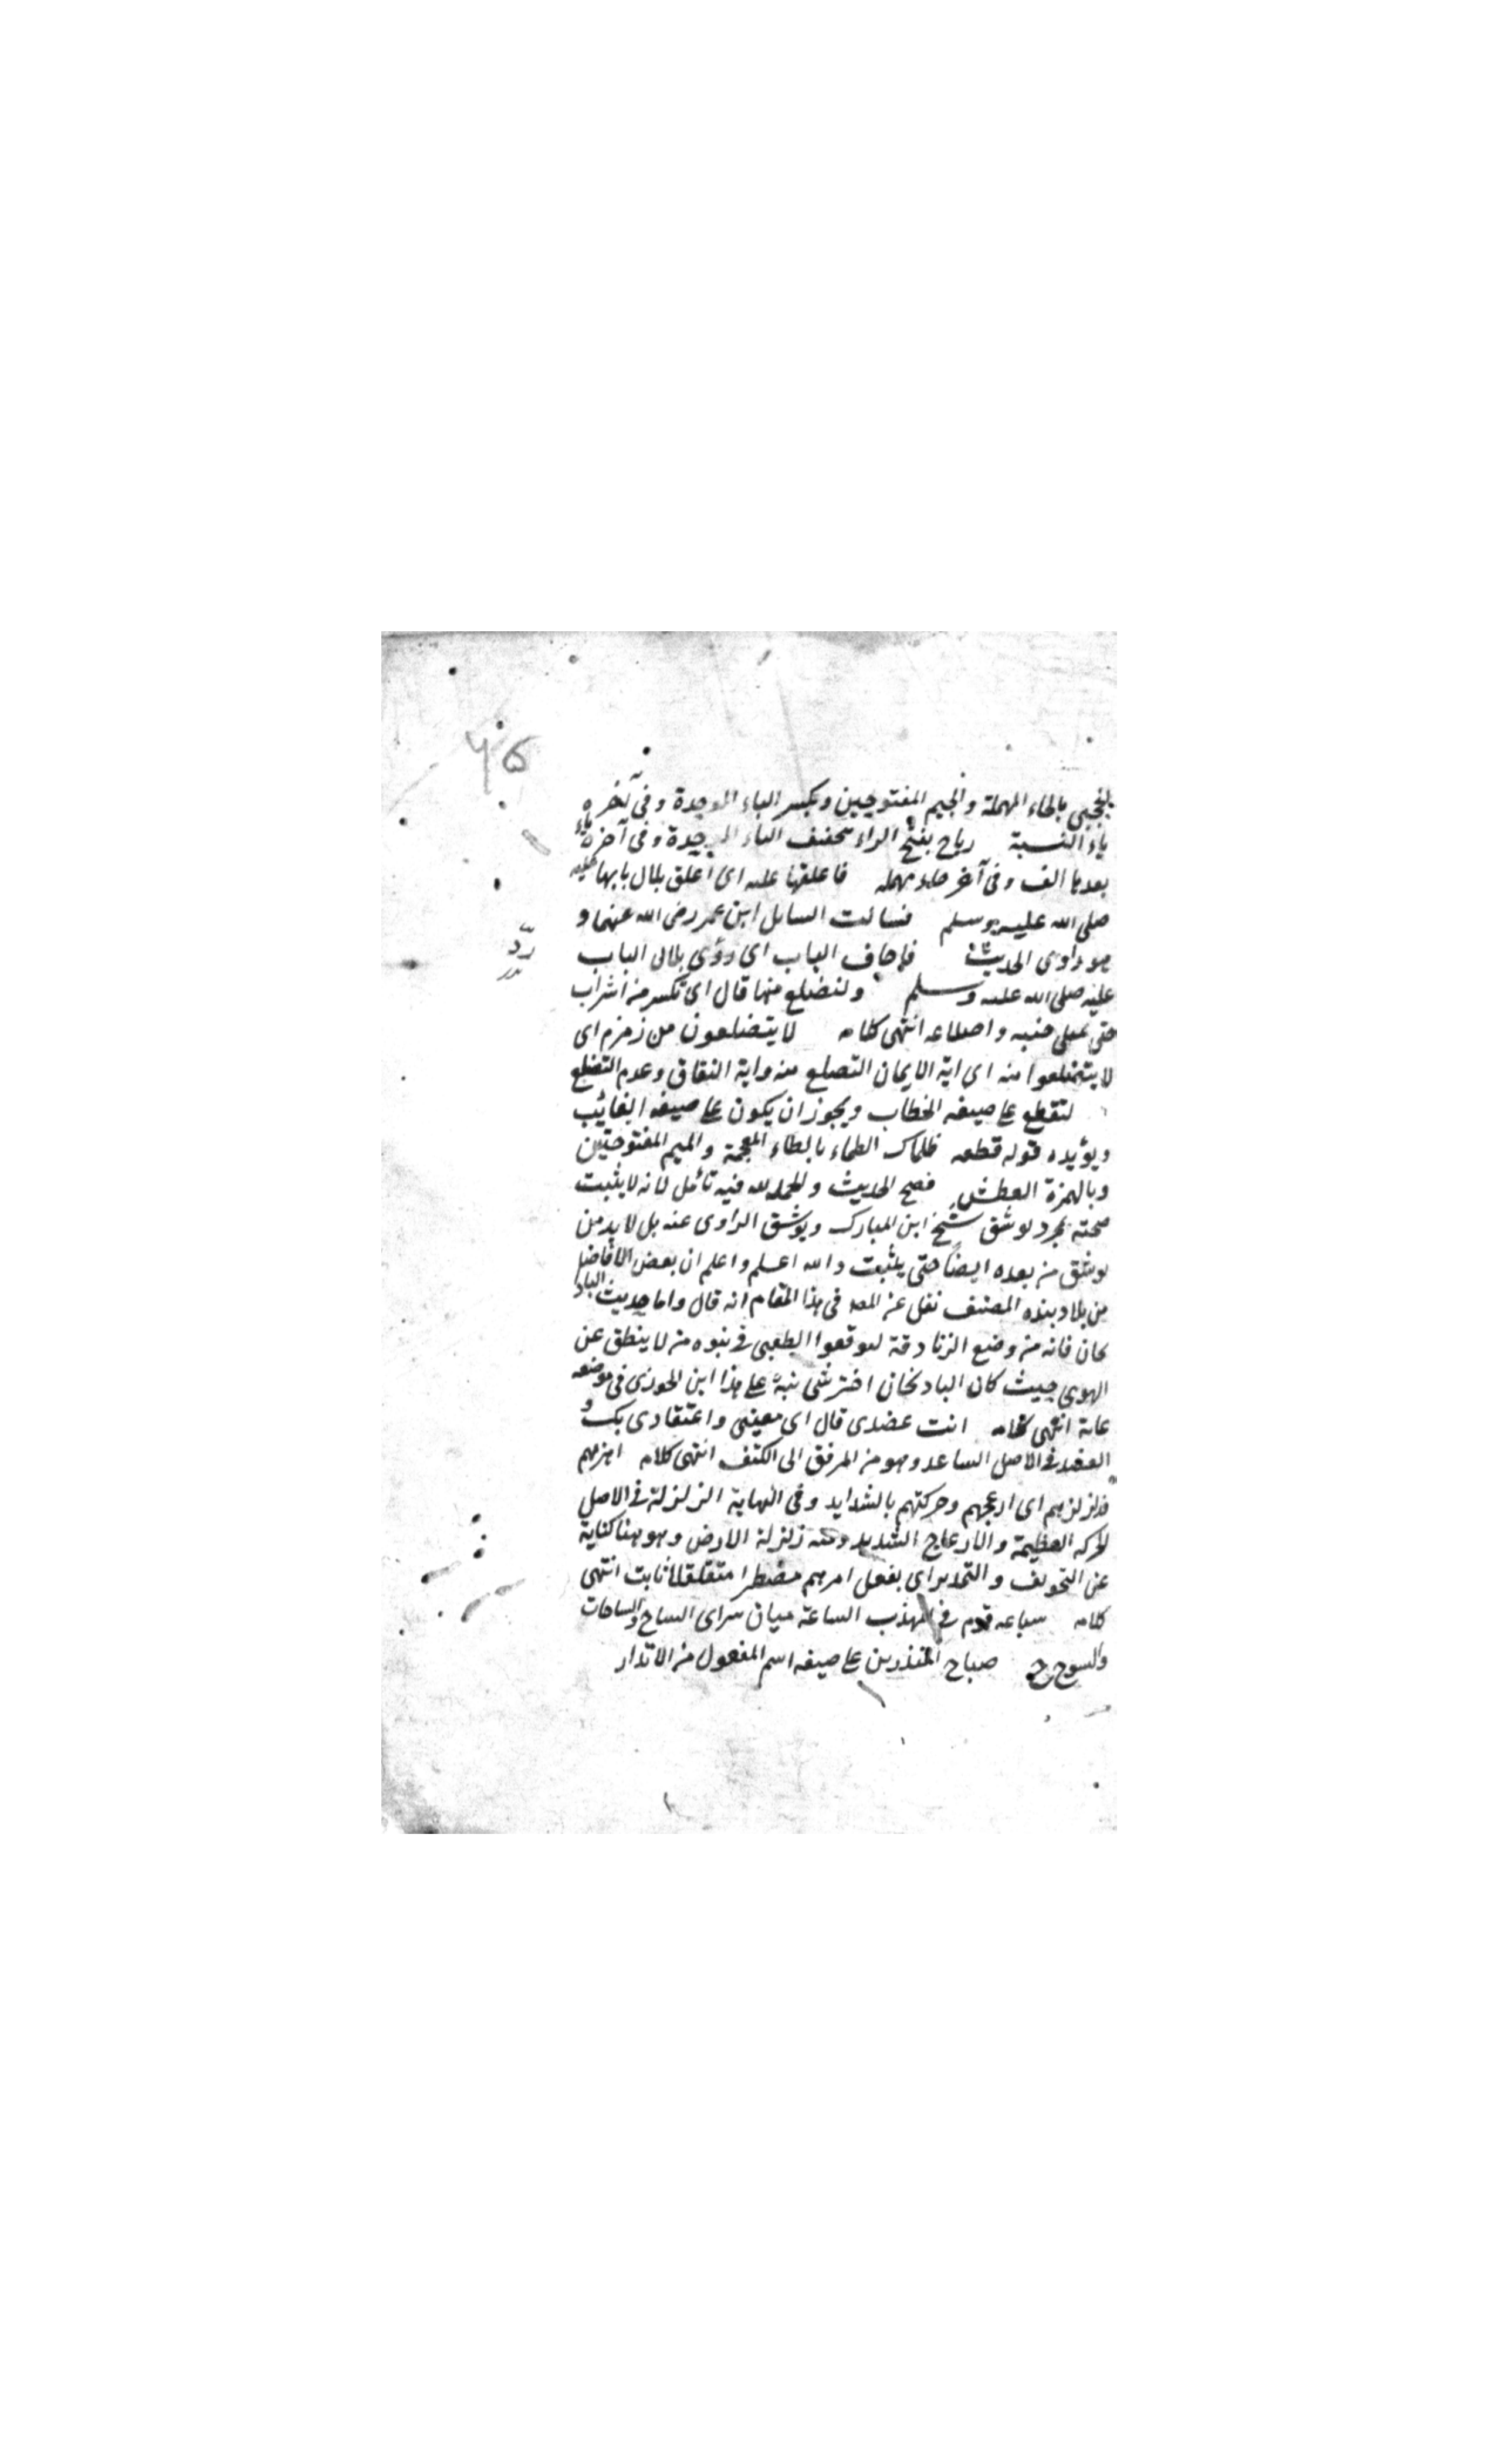 الحجبى بالحاء المهملة والجيم المفتوحين وبكسر الباء الموحدة وفى آخره
ياء النسبة رباح بفتح الراء تحفيف الباء الموحدة وفى آخره
بعدها الف وفى آخر حاء مهمله فاغلقها عليه اى اغلق بلال بابها عليه
صلى الله عليه وسلم فسالت السايل ابن عمر رضى الله عنهما و
هو راوى الحديث فاجاف الباب اى رد بلال الباب
عليه صلى الله عليه وسلم ولتضلع منها قال اى تكسر من اشراب
حتى تمتلى جنبه واضلاعه انتهى كلامه لا يتضلعون من زمزم اى
لا يتمتلعوا منه اى اية الايمان التضلع منه واية النفاق وعدم التضلع
لتقطع على صيغه الخطاب ويجوز ان يكون على صيغه الغائب
ويؤيده قوله قطعه ظماك الظماء بالظاء المعجمة والميم المفتوحتين
وبالهمزة العطش فصح الحديث والحمد لله فيه تأمل لانه لا يثبت
صحته بمجرد توشق شيخ ابن المبارك ويوشق الراوى عنه بل لا بد من
توشق من بعده ايضا حتى يثبت والله اعلم واعلم ان بعض الافاضل
من بلاد هذه المصنف نقل عن المصـ فى هذا المقام انه قال واما حديث الباد
نجان فانه من وضع الزنادقة ليوقعوا الطعن فى نبوه من لا ينطق عن
الهوى حيث كان الباد نجان اخترشى نبه على هذا ابن الجوزى فى موضوعه
عاته انتهى كلامه انت عضدى قال اى معينى واعتقادى بك و
العضد فى الاصل الساعد وهو من المرفق الى الكتف انتهى كلامه اهزمهم
وزلزلهم اى ازعجهم وحركتهم بالشدايد وفى النهاية الزلزلة فى الاصل
الحركه العظيمة والازعاج الشديد ومنه زلزلة الارض وهو هنا كناية
عن التخويف والتحذير اى بفعل امرهم مضطرا متقلقلا ثابت انتهى
كلامه ساعه قدم فى المهذب الساعة ميان سراى الساح والساحات
والسوح ج صباح المنذرين على صيغه اسم المفعول من الانذار